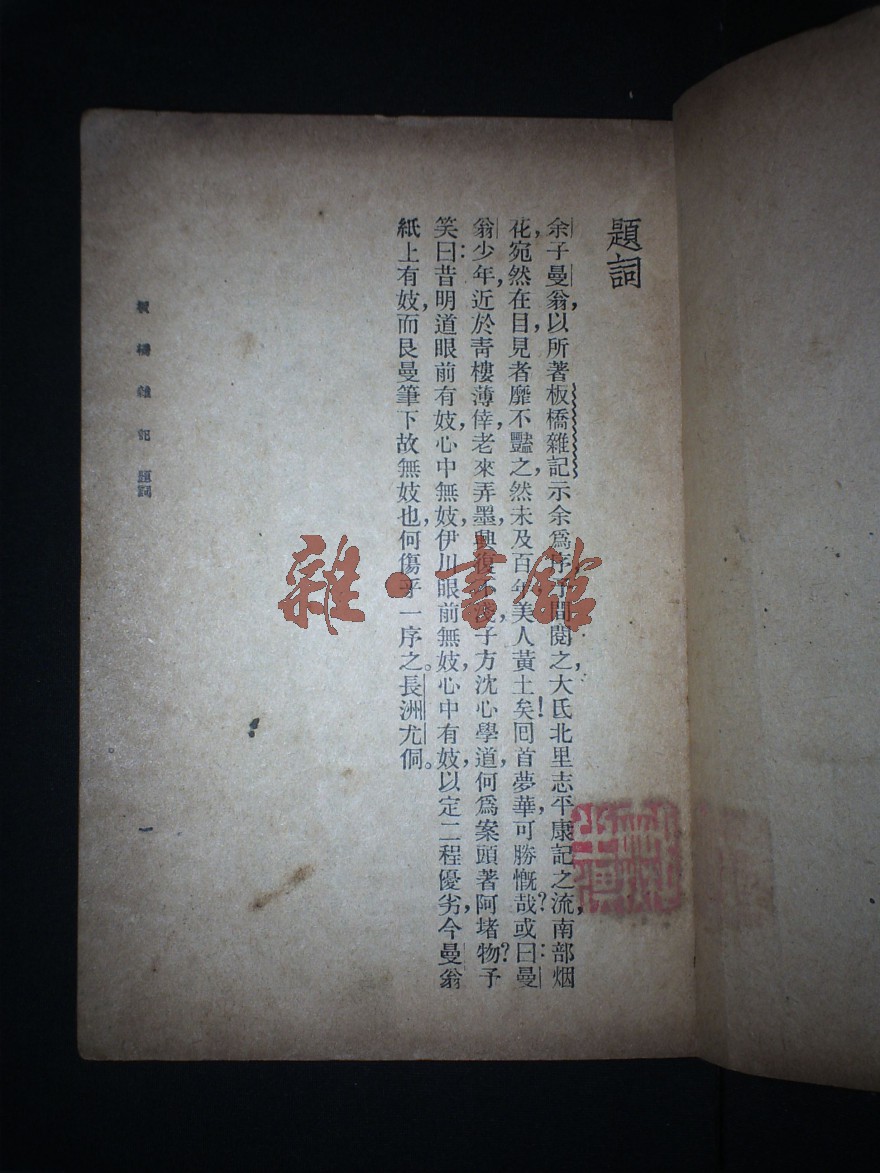 題詞
余子曼翁，以所著板橋雜記示余爲序，予間閱之，大氐北里志平康記之流，南部烟
花，宛然在目，見者靡不豔之，然未及百年，美人黃土矣！回首夢華，可勝慨哉？或曰：曼
翁少年，近於青樓薄倖，老來弄墨，興復不淺，子方沈心學道，何爲案頭著阿堵物？予
笑曰：昔明道眼前有妓，心中無妓，伊川眼前無妓，心中有妓，以定二程優劣，今曼翁
紙上有妓，而艮曼筆下故無妓也，何傷乎一序之。長洲尤侗。
板橋雜記 題詞
一
雜·書館